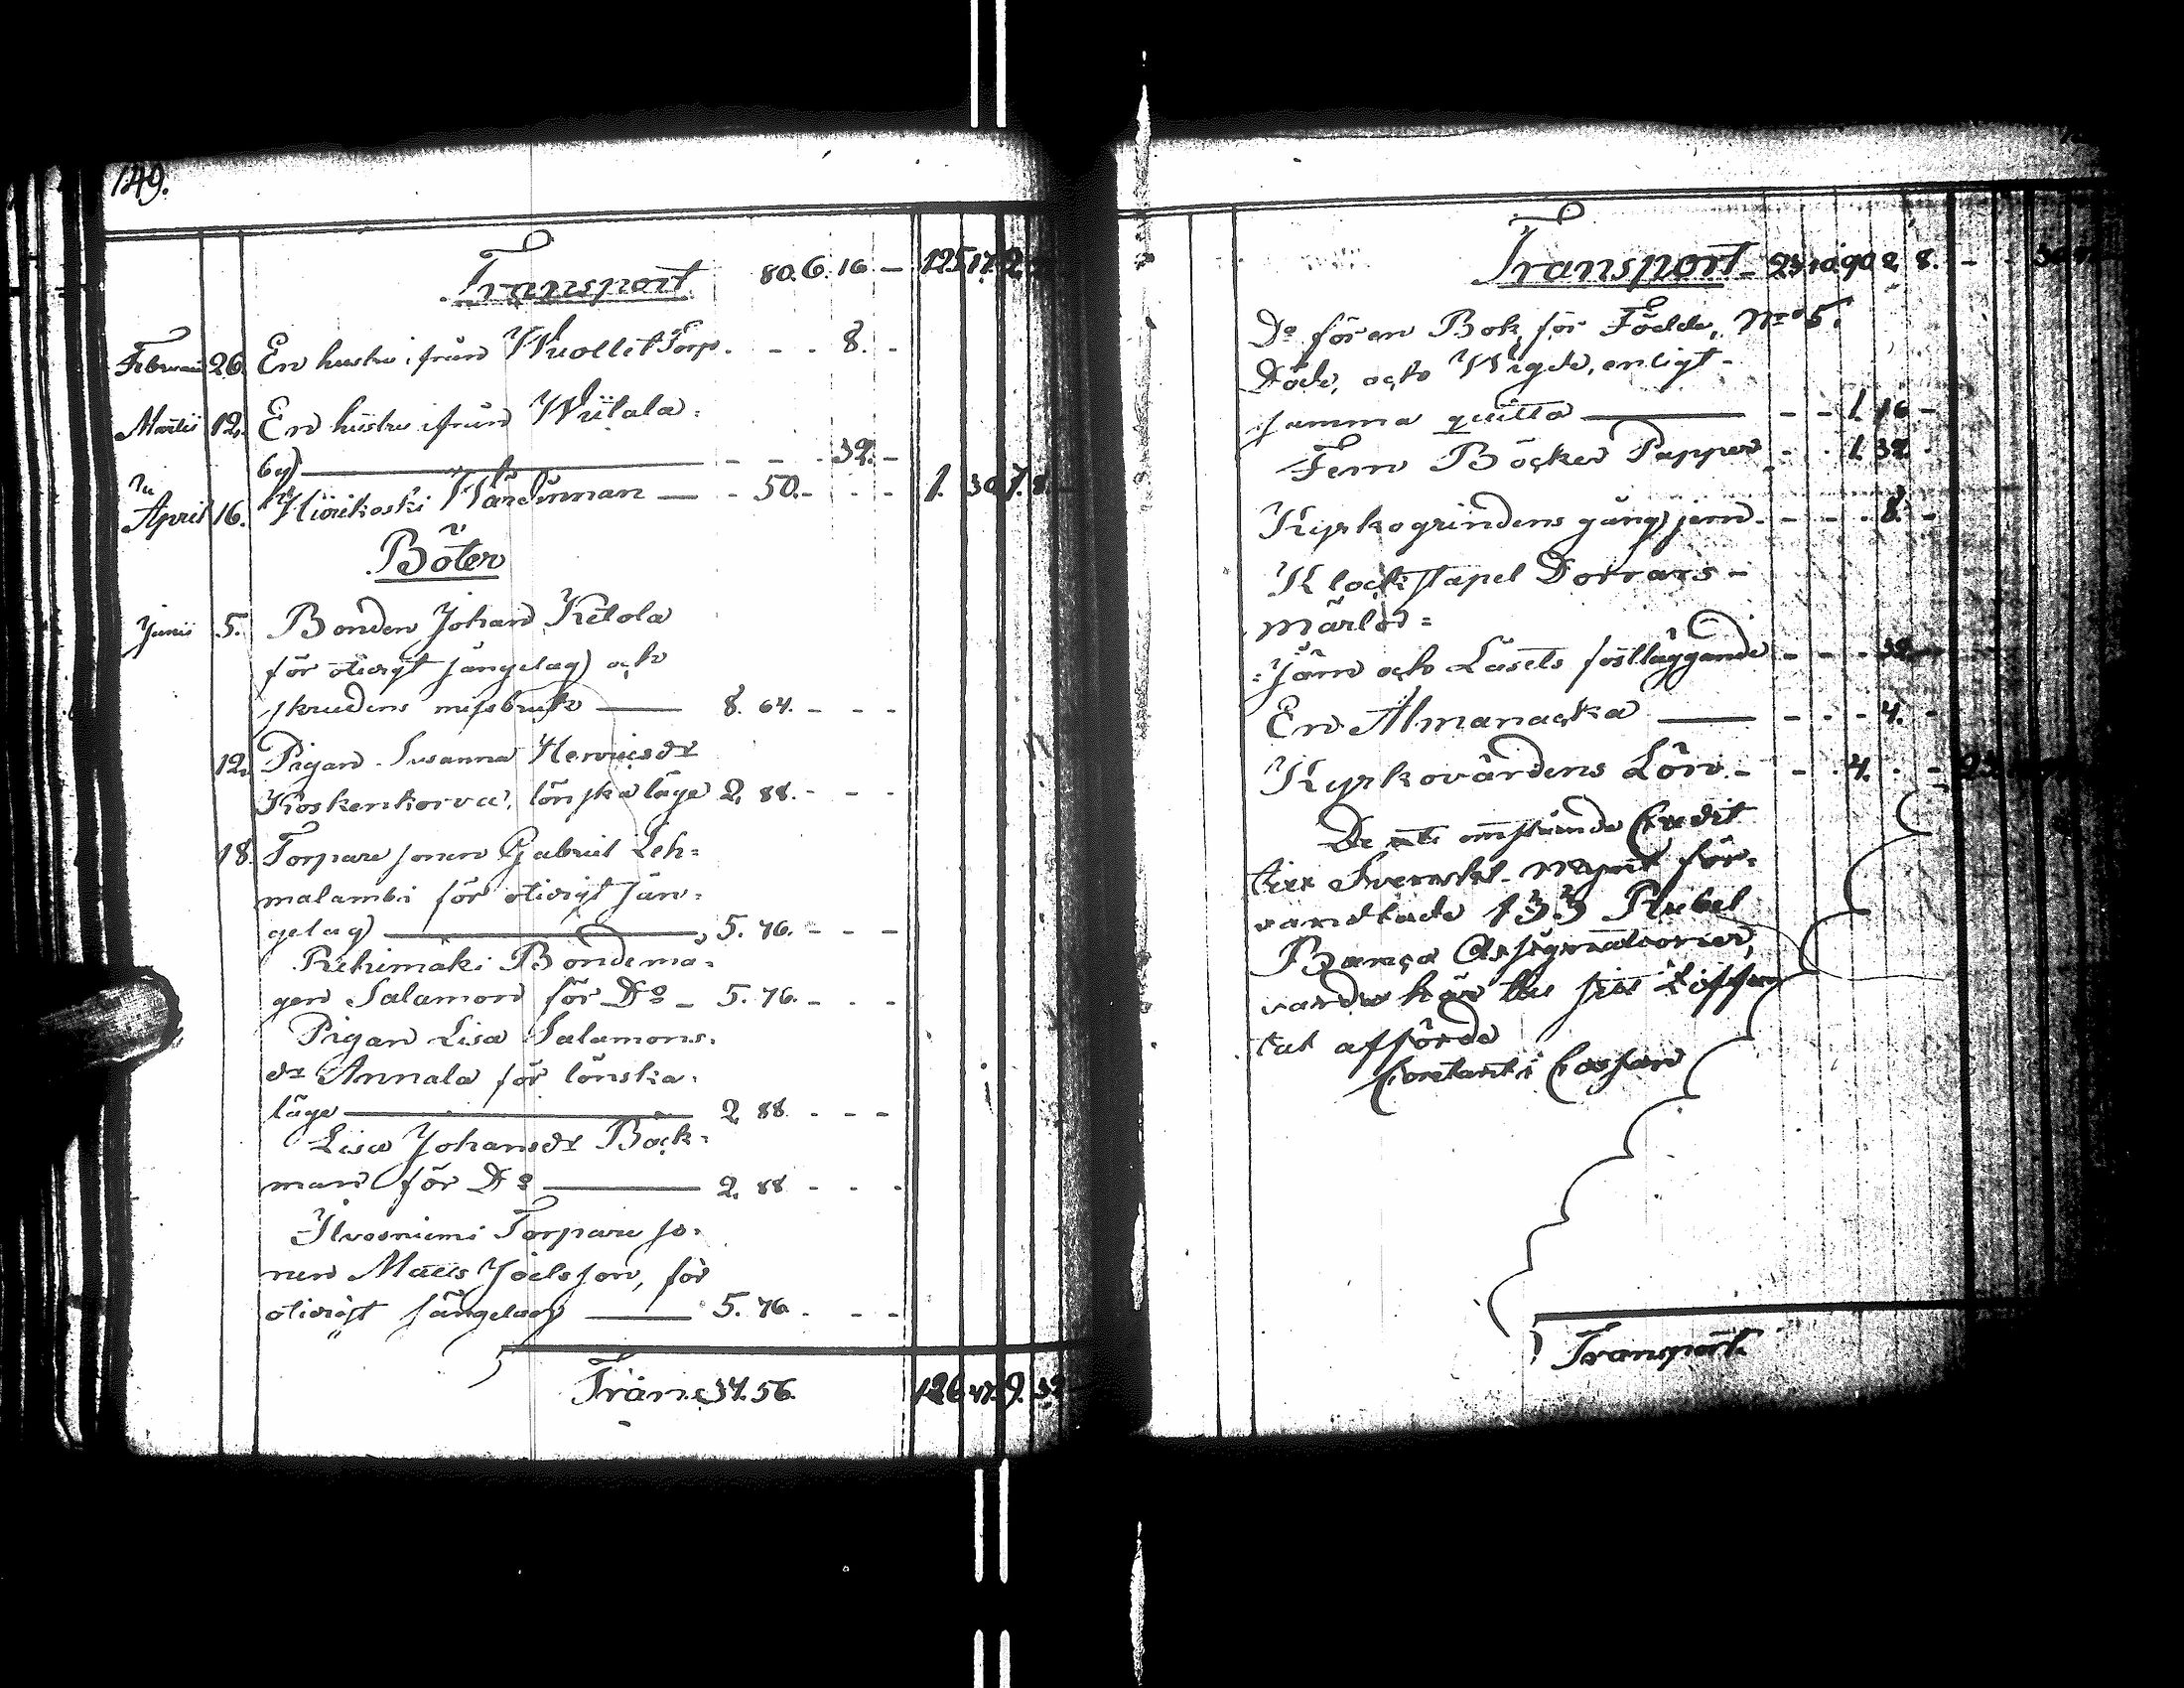 149.
Transport 80. 6. 16 — 125 17. 2.
Februarii 26. En hustru ifrån Wuollet Torp. - - - 8. -
Martii 12. En hustru ifrån Wiitala
by) — - - - 32. -
April 16. Hiirikoski Wärdinnan — - 50. - - - - 1. 30 7. 8
Böter
Junii 5. Bonden Johan Ketola
för otidigt sängelag) och
skrudens missbruk — 8. 64. - - -
12. Pigan Susanna Henricsdr
Koskenkorva, lönskaläge 2. 88. - - -
18. Torpare sonen Gabriel Leh=
malambi för otidigt sän=
gelag) — 5. 76. - - -
Riihimäki Bondemå=
gen Salamon för Do — 5. 76. - - -
Pigan Lisa Salamons=
dr Annala för lönska=
läge — 2. 88. - - -
Lisa Johansdr Bäck=
man för Do — 2. 88 - - -
Ilvesniemi Torpare so=
nen Matts Joelsson, för
otidigt sängelag) — 5. 76. - - -
Transp. 34. 56. 126 47. 9. 32
Transport - 23 10. 90 2. 8. - -
Do för en Bok för Födde, No 5.
Döde, och Wigde, enligt
samma quitto — - - 1. 16 -
Fem Böcker Papper - - 1. 32. -
Kyrkogrindens gång jern. - - - 8. -
Klockstapel Dorrars -
märlor =
= Järn och Låsets fastläggande - - - 32.
En Almanacka — - - - 4. -
Kyrkovärdens Lön. - - - 4. - -
De uti omstående Credit
till Svenskt mynt för=
vandlade 133 Rubel
Banco Assignationer,
varda här till
afförde
Contant i Cassan
Transport.